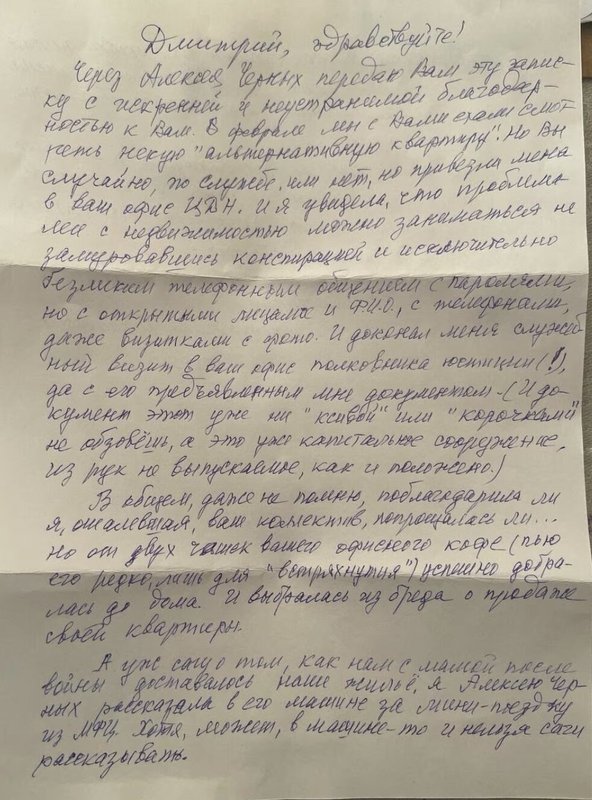 Дмитрий, здравствуйте!
Через Алексея Черных передаю Вам эту запис-
ку с искренней и неустранимой благодар-
ностью к Вам. В феврале мы с Вами стали смот
реть некую "альтернативную квартиру". Но Вы
случайно, по службе, или нет, но привезли меня
в ваш офис ЦДН. И я увидела, что проблема-
ми с недвижимостью можно заниматься не
замуровавшись конспирацией и исключительно
безликим телефонным общением с паролями,
но с открытыми лицами и Ф.И.О., с телефонами,
даже визитками с фото. И доконал меня служеб
ный визит в ваш офис полковника юстиции (!),
да с его предъявленным мне документом. (И до-
кумент этот уже ни "ксивой" или "корочками"
не обзовёшь, а это уже капитальное сооружение,
из рук не выпускаемое, как и положено.)
В общем, даже не помню, поблагодарила ли
я, ошалевшая, ваш коллектив, попрощалась ли...
Но от двух чашек вашего офисного кофе (пью
его редко, лишь для "встряхнутия") успешно добра-
лась до дома. И выбралась из бреда о продаже
своей квартиры.
А уж сагу о том, как нам с мамой после
войны доставалось наше жильё, я Алексею Чер-
ных рассказала в его машине за мини-поездку
из МФЦ. Хотя, может, в машине-то и нельзя саги
рассказывать.